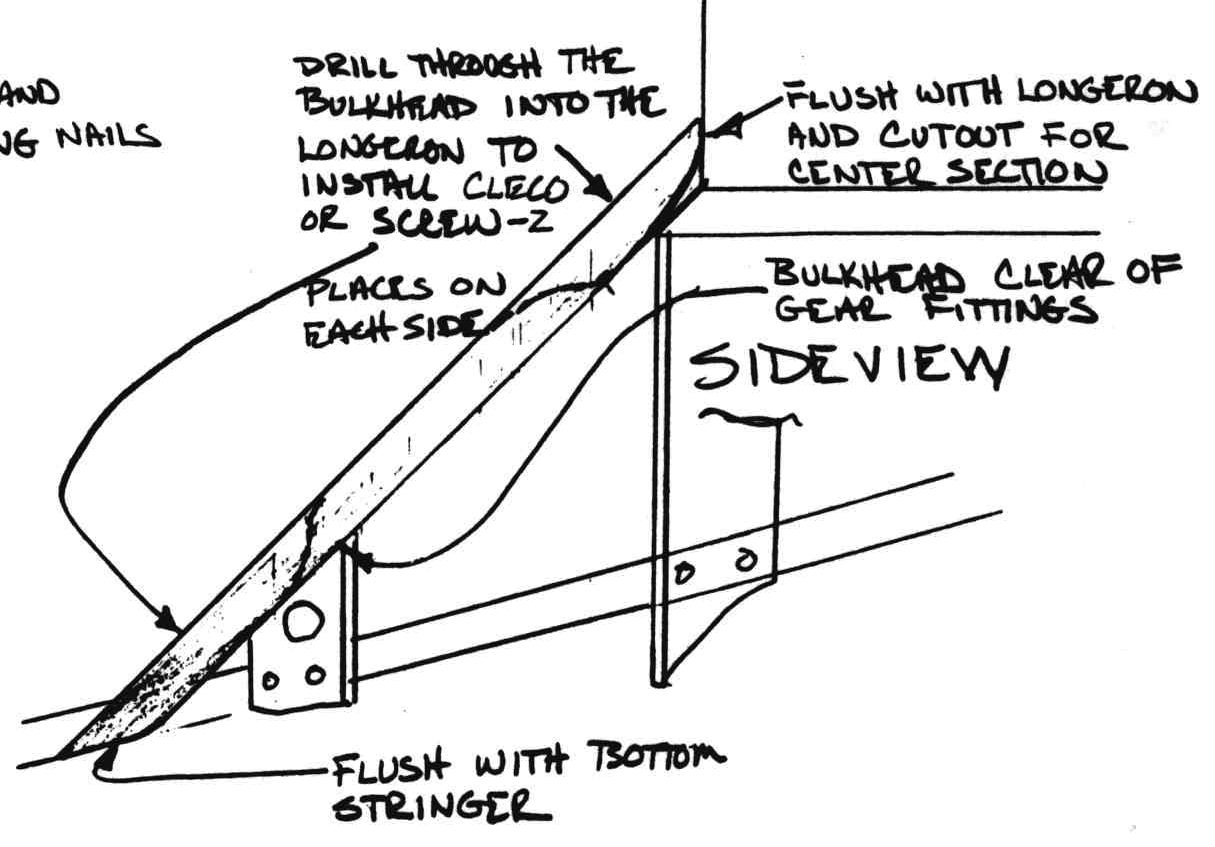 AND
NG NAILS
DRILL THROUGH THE
BULKHEAD INTO THE
LONGERON TO
INSTALL CLECO
OR SCREW-2
PLACES ON
EACH SIDE
FLUSH WITH LONGERON
AND CUTOUT FOR
CENTER SECTION
BULKHEAD CLEAR OF
GEAR FITTINGS
SIDE VIEW
FLUSH WITH BOTTOM
STRINGER